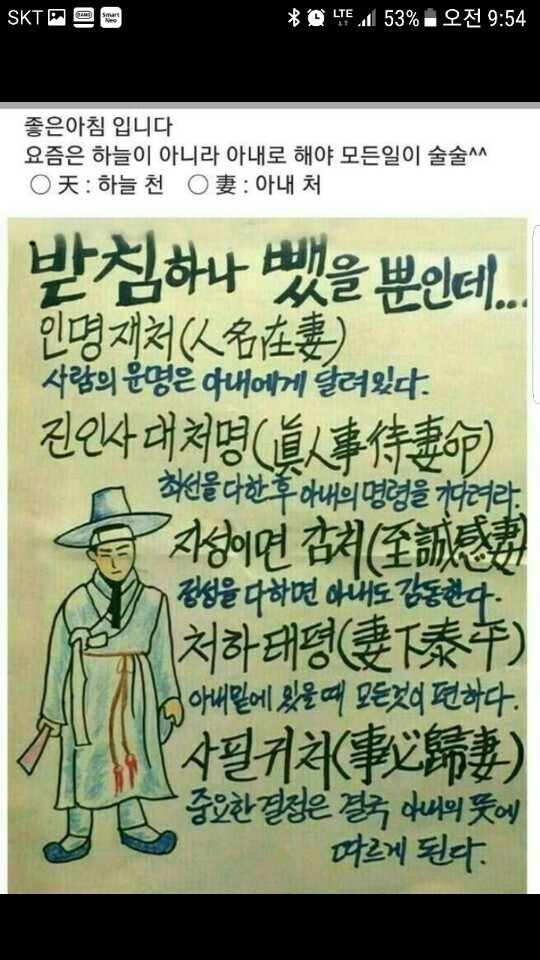 SKT BAND Smart Neo LTE 53% 오전 9:54
좋은아침 입니다
요즘은 하늘이 아니라 아내로 해야 모든일이 술술^^
○ 天 : 하늘 천 ○ 妻 : 아내 처
받침하나 뺐을 뿐인데...
인명재처(人名在妻)
사람의 운명은 아내에게 달려있다.
진인사대처명(眞人事待妻命)
최선을 다한후 아내의 명령을 기다려라.
지성이면 감처(至誠感妻)
정성을 다하면 아내도 감동한다.
처하태평(妻下泰平)
아내밑에 있을때 모든것이 편하다.
사필귀처(事必歸妻)
중요한 결정은 결국 아내의 뜻에
따르게 된다.